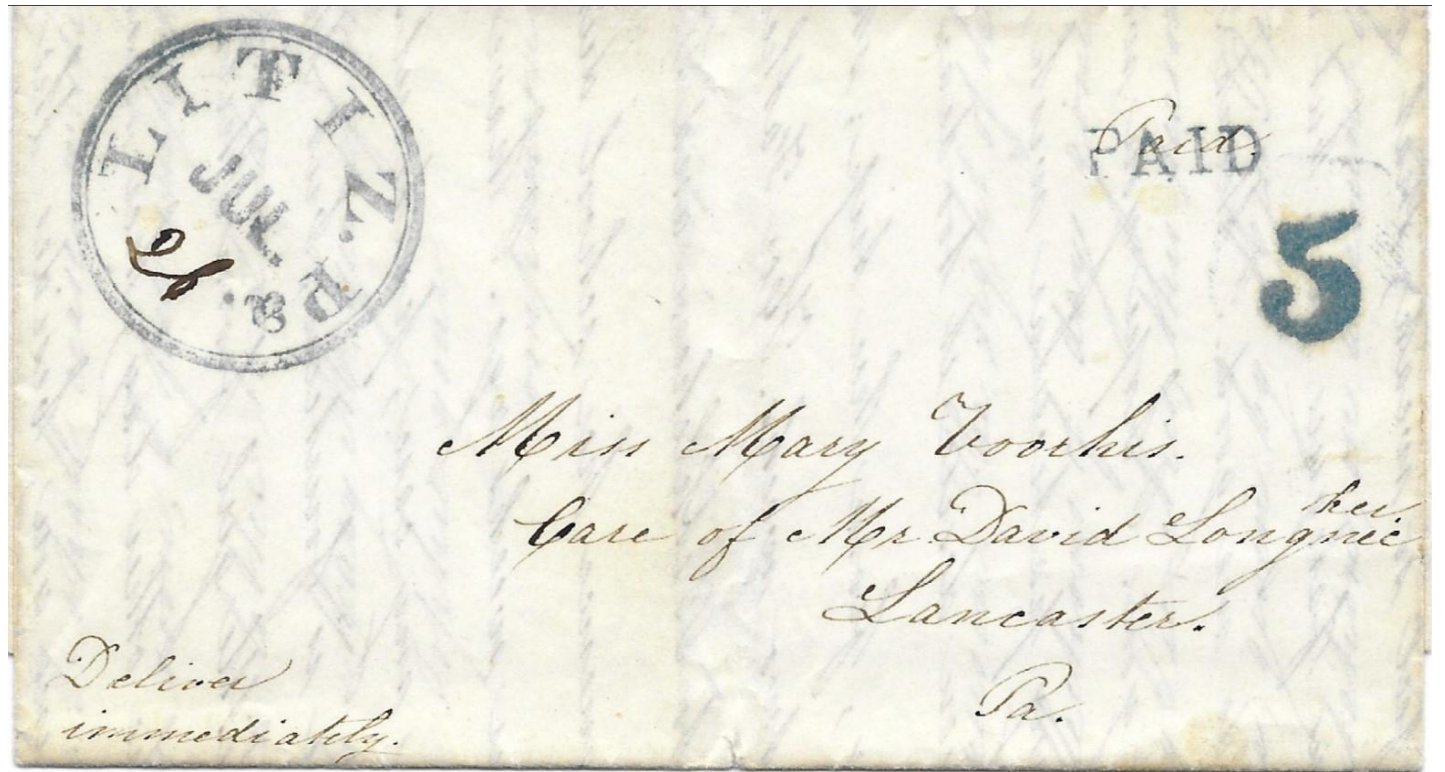 LITIZ. Pa.
JUL.
26
Paid.
PAID
5
Miss Mary Voorhis.
Care of Mr David Longnecker.
Lancaster.
Pa.
Deliver
immediately.